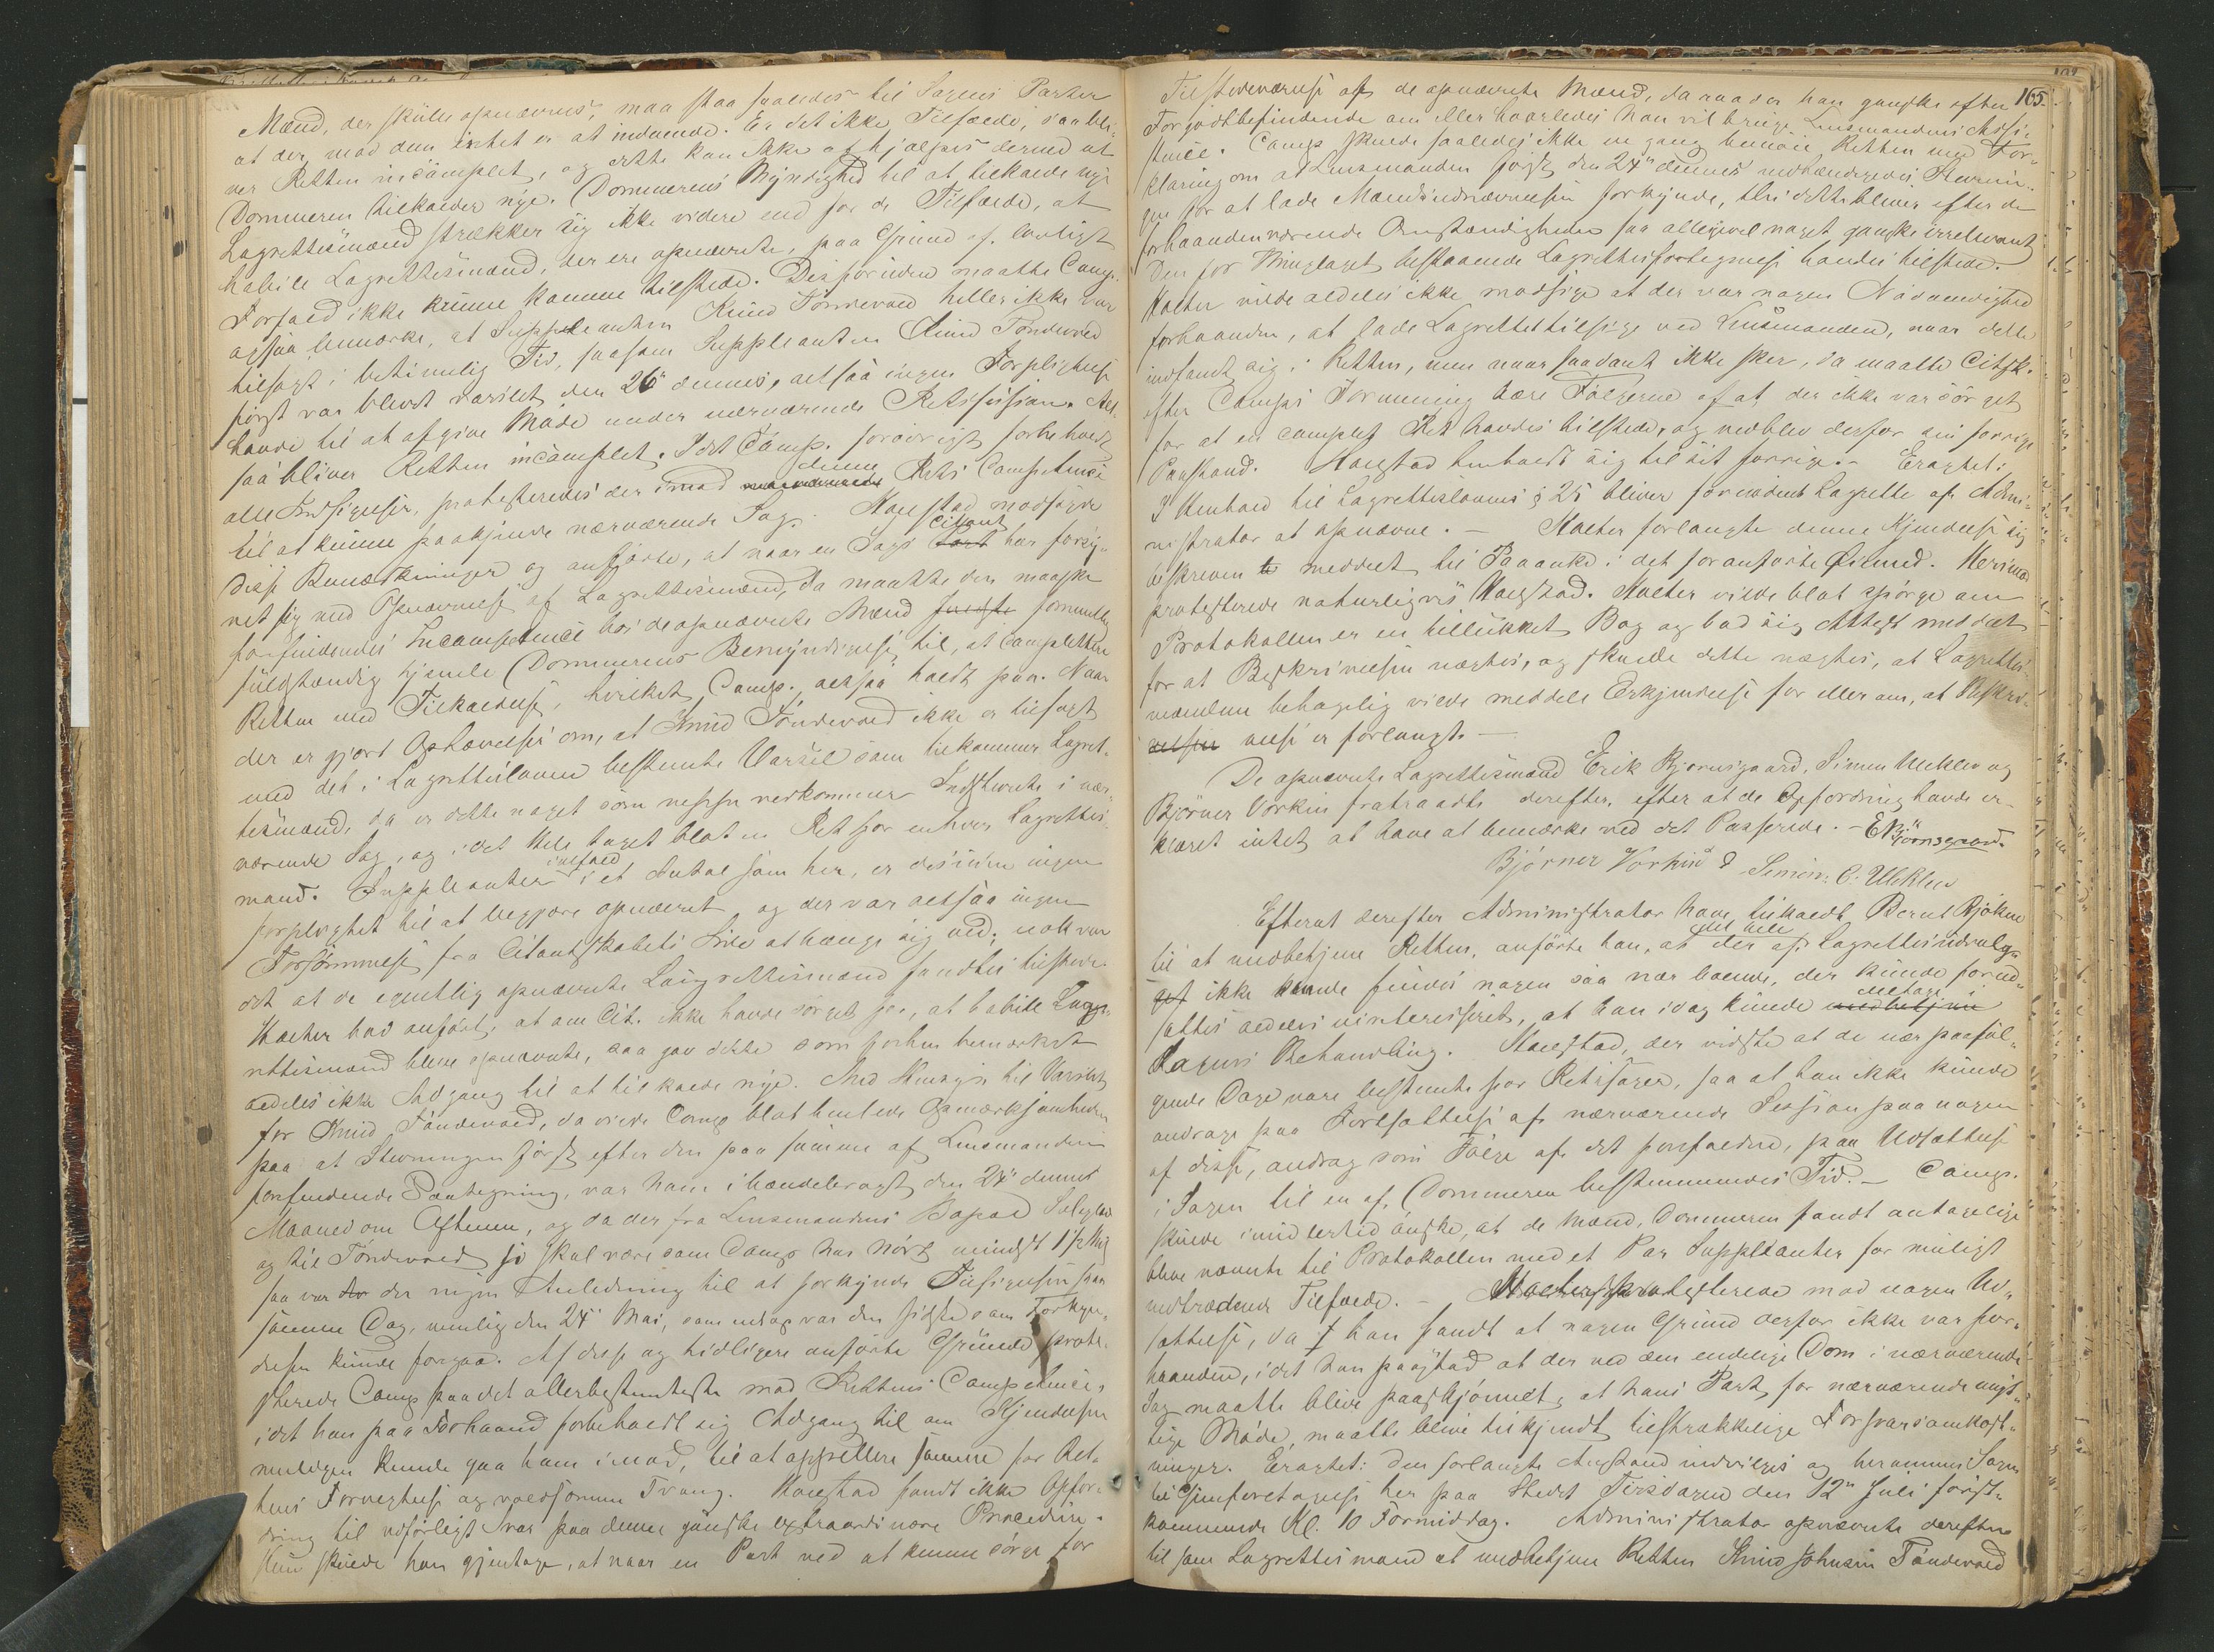 Mænd, der skulle opnævnes, maa staa saaledes til Sagens Parter
at der mod dem intet er at indvende. Er det ikke Tilfælde, saa bli-
ver Retten incomplet, og dette kan ikke afhjælpes derved at
Dommeren tilkalder nye. Dommerens Myndighed til at tilkalde nye
Lagrettesmænd strækker sig ikke videre end for de Tilfælde, at
habile Lagrettesmænd, der ere opnævnte, paa Grund af lovligt
Forfald ikke kunne komme tilstede. Desforuden maatte Comp.
ogsaa bemærke, at Suppleanten Knud Tøndevold heller ikke var
tilsagt i betimelig Tid, saasom Suppleanten Knud Tøndevold
først var blevet varslet den 26de dennes, altsaa ingen Forpligtelse
havde til at afgive Møde under nærværende Retssession. Alt-
saa bliver Retten incomplet. Idet Comp. forøvrigt forbeholdt
alle Indsigelser, protesteredes der imod denne Rets Competence
til at kunne paakjende nærværende Sag. Haugstad modsagde
disse Bemærkninger og anførte, at naar en Sags Citant har forsy-
net sig med Opnævnelse af Lagrettesmænd, da maatte den maaske
forefindendes Incompetence hos de opnævnte Mænd formentlig
fuldstændig hjemle Dommerens Bemyndigelse til, at complettere
Retten med Tilkaldelse, hvilket Comp. altsaa holdt paa. Naar
der er gjort Ophævelser om, at Knud Tøndevold ikke er tilsagt
med det i Lagretteloven bestemte Varsel som tilkommer Lagret-
tesmænd, da er dette noget som neppe vedkommer Indstevnte i nær-
værende Sag, og i det Hele taget blot en Ret for enhver Lagrettes-
mand. Suppleanter ialfald i et Antal som her, er desuden ingen
forpligtet til at begjære opnævnt og der var altsaa ingen
Forsømmelse fra Citantskabets Side at hænge sig ved; nok var
det at de egentlig opnævnte Laugrettesmænd fandtes tilstede.
Holter bad anført, at om Cit. ikke havde sørget for, at habile Lagr-
ettesmænd bleve opnævnte, saa gav dette som forhen bemærket
aldeles ikke Adgang til at tilkalde nye. Med Hensyn til Varslet
for Knud Tøndevold, da vilde Comp blot henlede Opmærksomheden
paa at Stevningen først efter den paa samme af Lensmanden
forefindende Paategning, var ham ihændebragt den 24de dennes
Maaned om Aftenen, og da der fra Lensmandens Bopæl
og til Tøndevold skal være som Comp har hørt mindst 1½ Mil
saa var der ingen Anledning til at forkynde Tilsigelsen paa
samme Dag, nemlig den 24de Mai, som endog var den sidste som Forkyn-
delsen kunde foregaa. Af disse og tidligere anførte Grunde prote-
sterede Comp paa det allerbestemteste mod Rettens Competence,
idet han paa Forhaand forbeholdt sig Adgang til om Kjendelsen
muligen kunde gaa ham imod, til at appellere samme for Ret-
tens Fornegtelse og voldsomme Tvang. Haugstad fandt ikke Opfor-
dring til udførligt Svar paa denne ganske extraordinære Procedure.
skulde han gjentage, at naar en Part ved at kunne sørge for
165.
Tilstedeværelse af de opnævnte Mænd, da raader han ganske efter
Forgodtbefindende om eller hvorledes han vil bruge Lensmandens Assi-
stence. Comp skulde saaledes ikke en gang bemøie Retten med For-
klaring om at Lensmanden først den 24de dennes indhændigedes Stevnin-
gen for at lade Mændsudnævnelsen forkynde, thi dette bliver efter de
forhaandenværende Omstændigheder saa alligevel noget ganske irrelevant
Den for Thinglaget bestaaende Lagrettesfortegnelse havdes tilstede.
Holter vilde aldeles ikke modsige at der var nogen Nødvendighed
forhaanden, at lade Lagrettet tilsige ved Lensmanden, naar dette
indfandt sig i Retten, men naar saadant ikke sker, da maatte Citsk.
efter Comps Formening bære Følgerne af at der ikke var sørget
for at en complet Ret havdes tilstede, og vedblev derfor sin forrige
Paastand. Haugstad henholdt sig til sit forrige.- Eragtet:
I Henhold til Lagretteslovens § 25 bliver fornødent Lagrette af Admi-
nistrator at opnævne.- Holter forlangte denne Kjendelse sig
beskreven meddelt til Paaanke i det foranførte Øiemed. Herimod
protesterede naturligvis Haugstad. Holter vilde blot spørge om
Protokollen er en tillukket Bog og bad sig Attest meddelt
for at Beskrivelsen nægtes, og skulde dette nægtes, at Lagrettes-
mændene behagelig vilde meddele Erkjendelse for eller om, at Beskri-
velse er forlangt.-
De opnævnte Lagrettesmænd Erik Bjørnsgaard, Simen Uleklev og
Bjørner Vorkin fratraadte derefter, efter at de Opfordring havde er-
klæret intet at have at bemærke ved det Passerede.- EBjörnsgaard.
Bjørner Vorkind Simon: C: Uleklev
Efterat derefter Administrator have tilkaldt Bernt Bjøkne
til at medbetjene Retten, anførte han, at der af det hele Lagrettesudvalg
ikke kunde findes nogen saa nær boende, der kunde forud-
sættes aldeles uinteresseret, at han idag kunde deltage
Sagens Behandling. Haugstad, der vidste at de nær paaføl-
gende Dage vare bestemte for Retssager, saa at han ikke kunde
andrage paa Fortsættelse af nærværende Session paa nogen
af disse, androg som Følge af det forefaldne, paa Udsættelse
i Sagen til en af Dommeren bestemmendes Tid.- Comp.
skulde imidlertid ønske, at de Mænd, Dommeren fandt antagelige
bleve nævnte til Protokollen med et Par Suppleanter for muligt
indtrædende Tilfælde.- Holter protesterede mod nogen Ud-
sættelse, da han fandt at nogen Grund derfor ikke var for-
haanden, idet han paastod at der ved den endelige Dom i nærværende
Sag maatte blive paaskjønnet, at hans Part for nærværende unyt-
tige Møde, maatte blive tilkjendt tilstrækkelige Forsvarsomkost-
ninger. Eragtet: Den forlangte Anstand indvilges og berammes Sagen
til Gjenforetagelse her paa Stedet Tirsdagen den 12te Juli først-
kommende Kl. 10 Formiddag. Administrator opnævnte derefter
til som Lagrettesmænd at medbetjene Retten Knud Johnsen Tøndevold